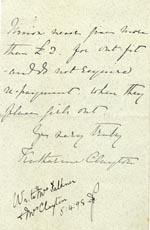 Union never gives more
than £2. for outfit
- and do not require
repayment when they
place girls out
Yrs very truly
Katherine Clayton
Write Mrs Falkner
& Mrs Clayton
5.4.05